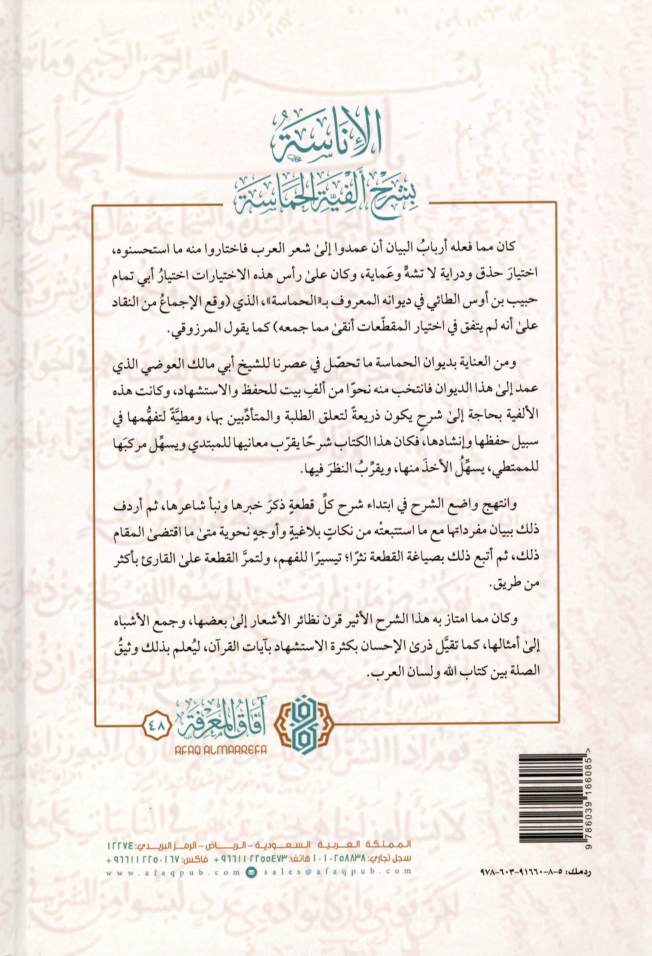 الإِنَاسَةُ
بِشَرْحِ أَلْفِيَّةِ الحَمَاسَةِ
كان مما فعله أربابُ البيان أن عمدوا إلىٰ شعر العرب فاختاروا منه ما استحسنوه،
اختيارَ حذق ودراية لا تشهٍّ وعَماية، وكان علىٰ رأس هذه الاختيارات اختيارُ أبي تمام
حبيب بن أوس الطائي في ديوانه المعروف بـ«الحماسة»، الذي (وقع الإجماعُ من النقاد
علىٰ أنه لم يتفق في اختيار المقطّعات أنقىٰ مما جمعه) كما يقول المرزوقي.
ومن العناية بديوان الحماسة ما تحصّل في عصرنا للشيخ أبي مالك العوضي الذي
عمد إلىٰ هذا الديوان فانتخب منه نحوًا من ألفِ بيت للحفظ والاستشهاد، وكانت هذه
الألفية بحاجة إلىٰ شرحٍ يكون ذريعةً لتعلق الطلبة والمتأدِّبين بها، ومطيَّةً لتفهُّمها في
سبيل حفظها وإنشادها، فكان هذا الكتاب شرحًا يقرّب معانيها للمبتدي ويسهِّل مركبَها
للممتطي، يسهِّلُ الأخذَ منها، ويقرِّبُ النظرَ فيها.
وانتهج واضع الشرح في ابتداء شرح كلِّ قطعةٍ ذكرَ خبرها ونبأ شاعرها، ثم أردف
ذلك ببيان مفرداتها مع ما استتبعتْه من نكاتٍ بلاغيةٍ وأوجهٍ نحوية متىٰ ما اقتضىٰ المقام
ذلك، ثم أتبع ذلك بصياغة القطعة نثرًا؛ تيسيرًا للفهم، ولتمرَّ القطعة علىٰ القارئ بأكثر
من طريق.
وكان مما امتاز به هذا الشرح الأثير قرن نظائر الأشعار إلىٰ بعضها، وجمع الأشباه
إلىٰ أمثالها، كما تقيَّل ذرىٰ الإحسان بكثرة الاستشهاد بآيات القرآن، ليُعلم بذلك وثيقُ
الصلة بين كتاب الله ولسان العرب.
آفاق المعرفة
AFAQ ALMAAREFA
٤٨
9 786039 166085 >
المملكة العربية السعودية – الرياض – الرمز البريدي: ١٢٢٧٤
سجل تجاري: ١٠١٠٢٥٨٨٣٨ هاتف: ٩٦٦١١٢٢٥٥٤٧٣ + فاكس: ٩٦٦١١٢٢٥٠١٦٧ +
www.afaqpub.com sales@afaqpub.com
ردمك: ٥-٨-٩١٦٦٠-٦٠٣-٩٧٨